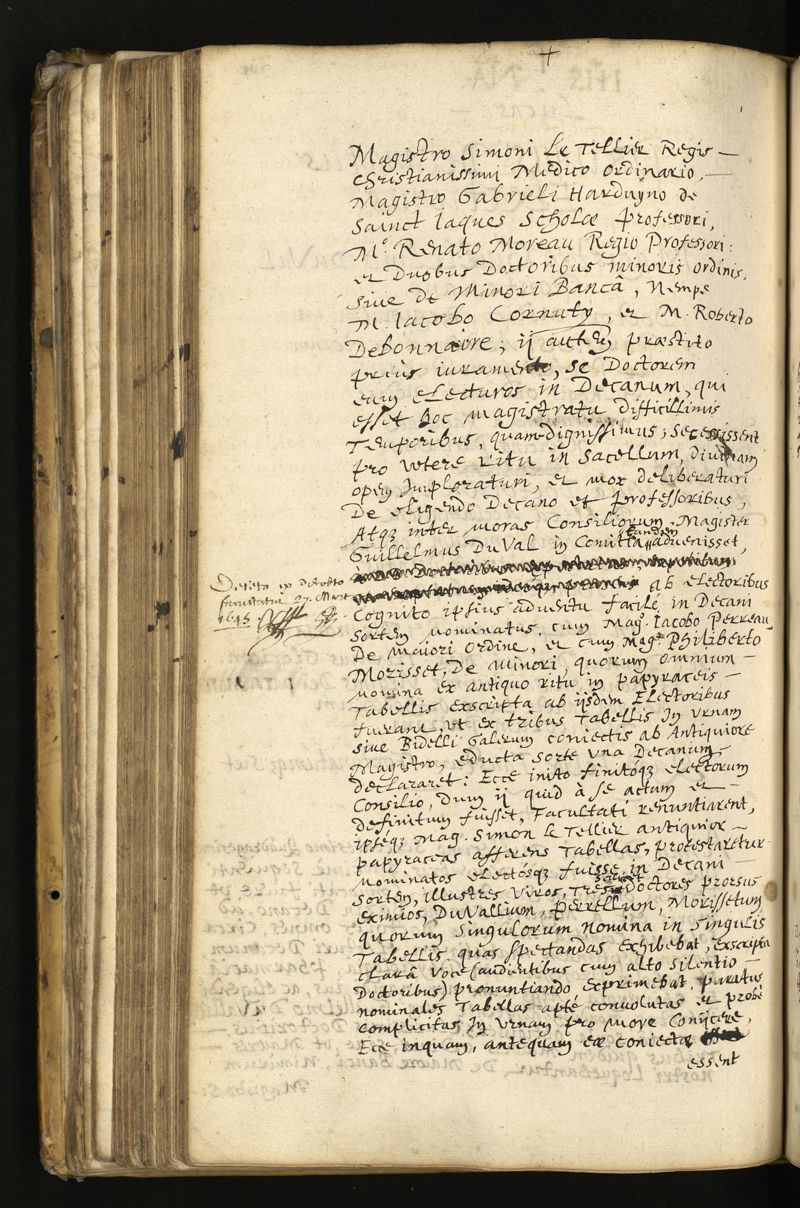 +
Magistro Simoni Le Tellier Regis —
Christianissimi Medico ordinario, —
Magistro Gabrieli Harduyno de
Sainct Iaques Scholæ Professori,
M.º Renato Moreau Regio Professori:
et Duobus Doctoribus minoris ordinis,
sive de Minori Bancâ, Nempe
M. Iacobo Cornuty, et M. Roberto
Debonnaire; ij autem præstito
priùs iuramento, se Doctorem
eum electuros in Decanum, qui
esset hoc magistratu difficillimis
Temporibus, quam dignissimus; secessissent
pro vetere ritu in sacellum, divinam
opem Imploraturi, et mox deliberaturi
De eligendo Decano et Professoribus,
Atqz inter moras Consiliorum, Magister
Guillelmus DuVal in Comitia tandem advenisset,
ab electoribus
Deleta ex Decreto
facultatis 27. Mart.
1645
Cognito ipsius adventu facilè in Decani
sortem nominatus, cum Mag. Iacobo Perreau
De maiori ordine, et cum Magro Philiberto
Morisset, De minori, quorum omnium —
nomina ex antiquo ritu in papyraceis —
Tabellis exscripta ab ijsdem Electoribus
fuerant, ut ex tribus Tabellis In urnam
sive Bidelli Galerum coniectis ab Antiquiore
Magistro, educta sorte una Decanum
declararet: Ecce inito finitóqz electorum
Consilio, dum ij quid à se actum et —
definitum fuisset, Facultati renuntiarent,
ipséqz Mag. Simon le Tellier antiquior —
papyraceas afferens Tabellas, protestaretur
nominatos electósqz fuisse in Decani —
sortem, illustres viros, Tres Doctores prorsus
eximios, DuVallium, Perrellum, Morissetum
quorum singulorum nomina in singulis
Tabellis quas spectandas exhibebat, exscripta
clarâ voce (audientibus cum alto silentio —
Doctoribus) pronuntiando exprimebat, paratus
nominales Tabellas aptè convolutas et probè
complicitas In urnam pro more Conijcere,
Ecce inquam, antequam eæ coniectæ
essent